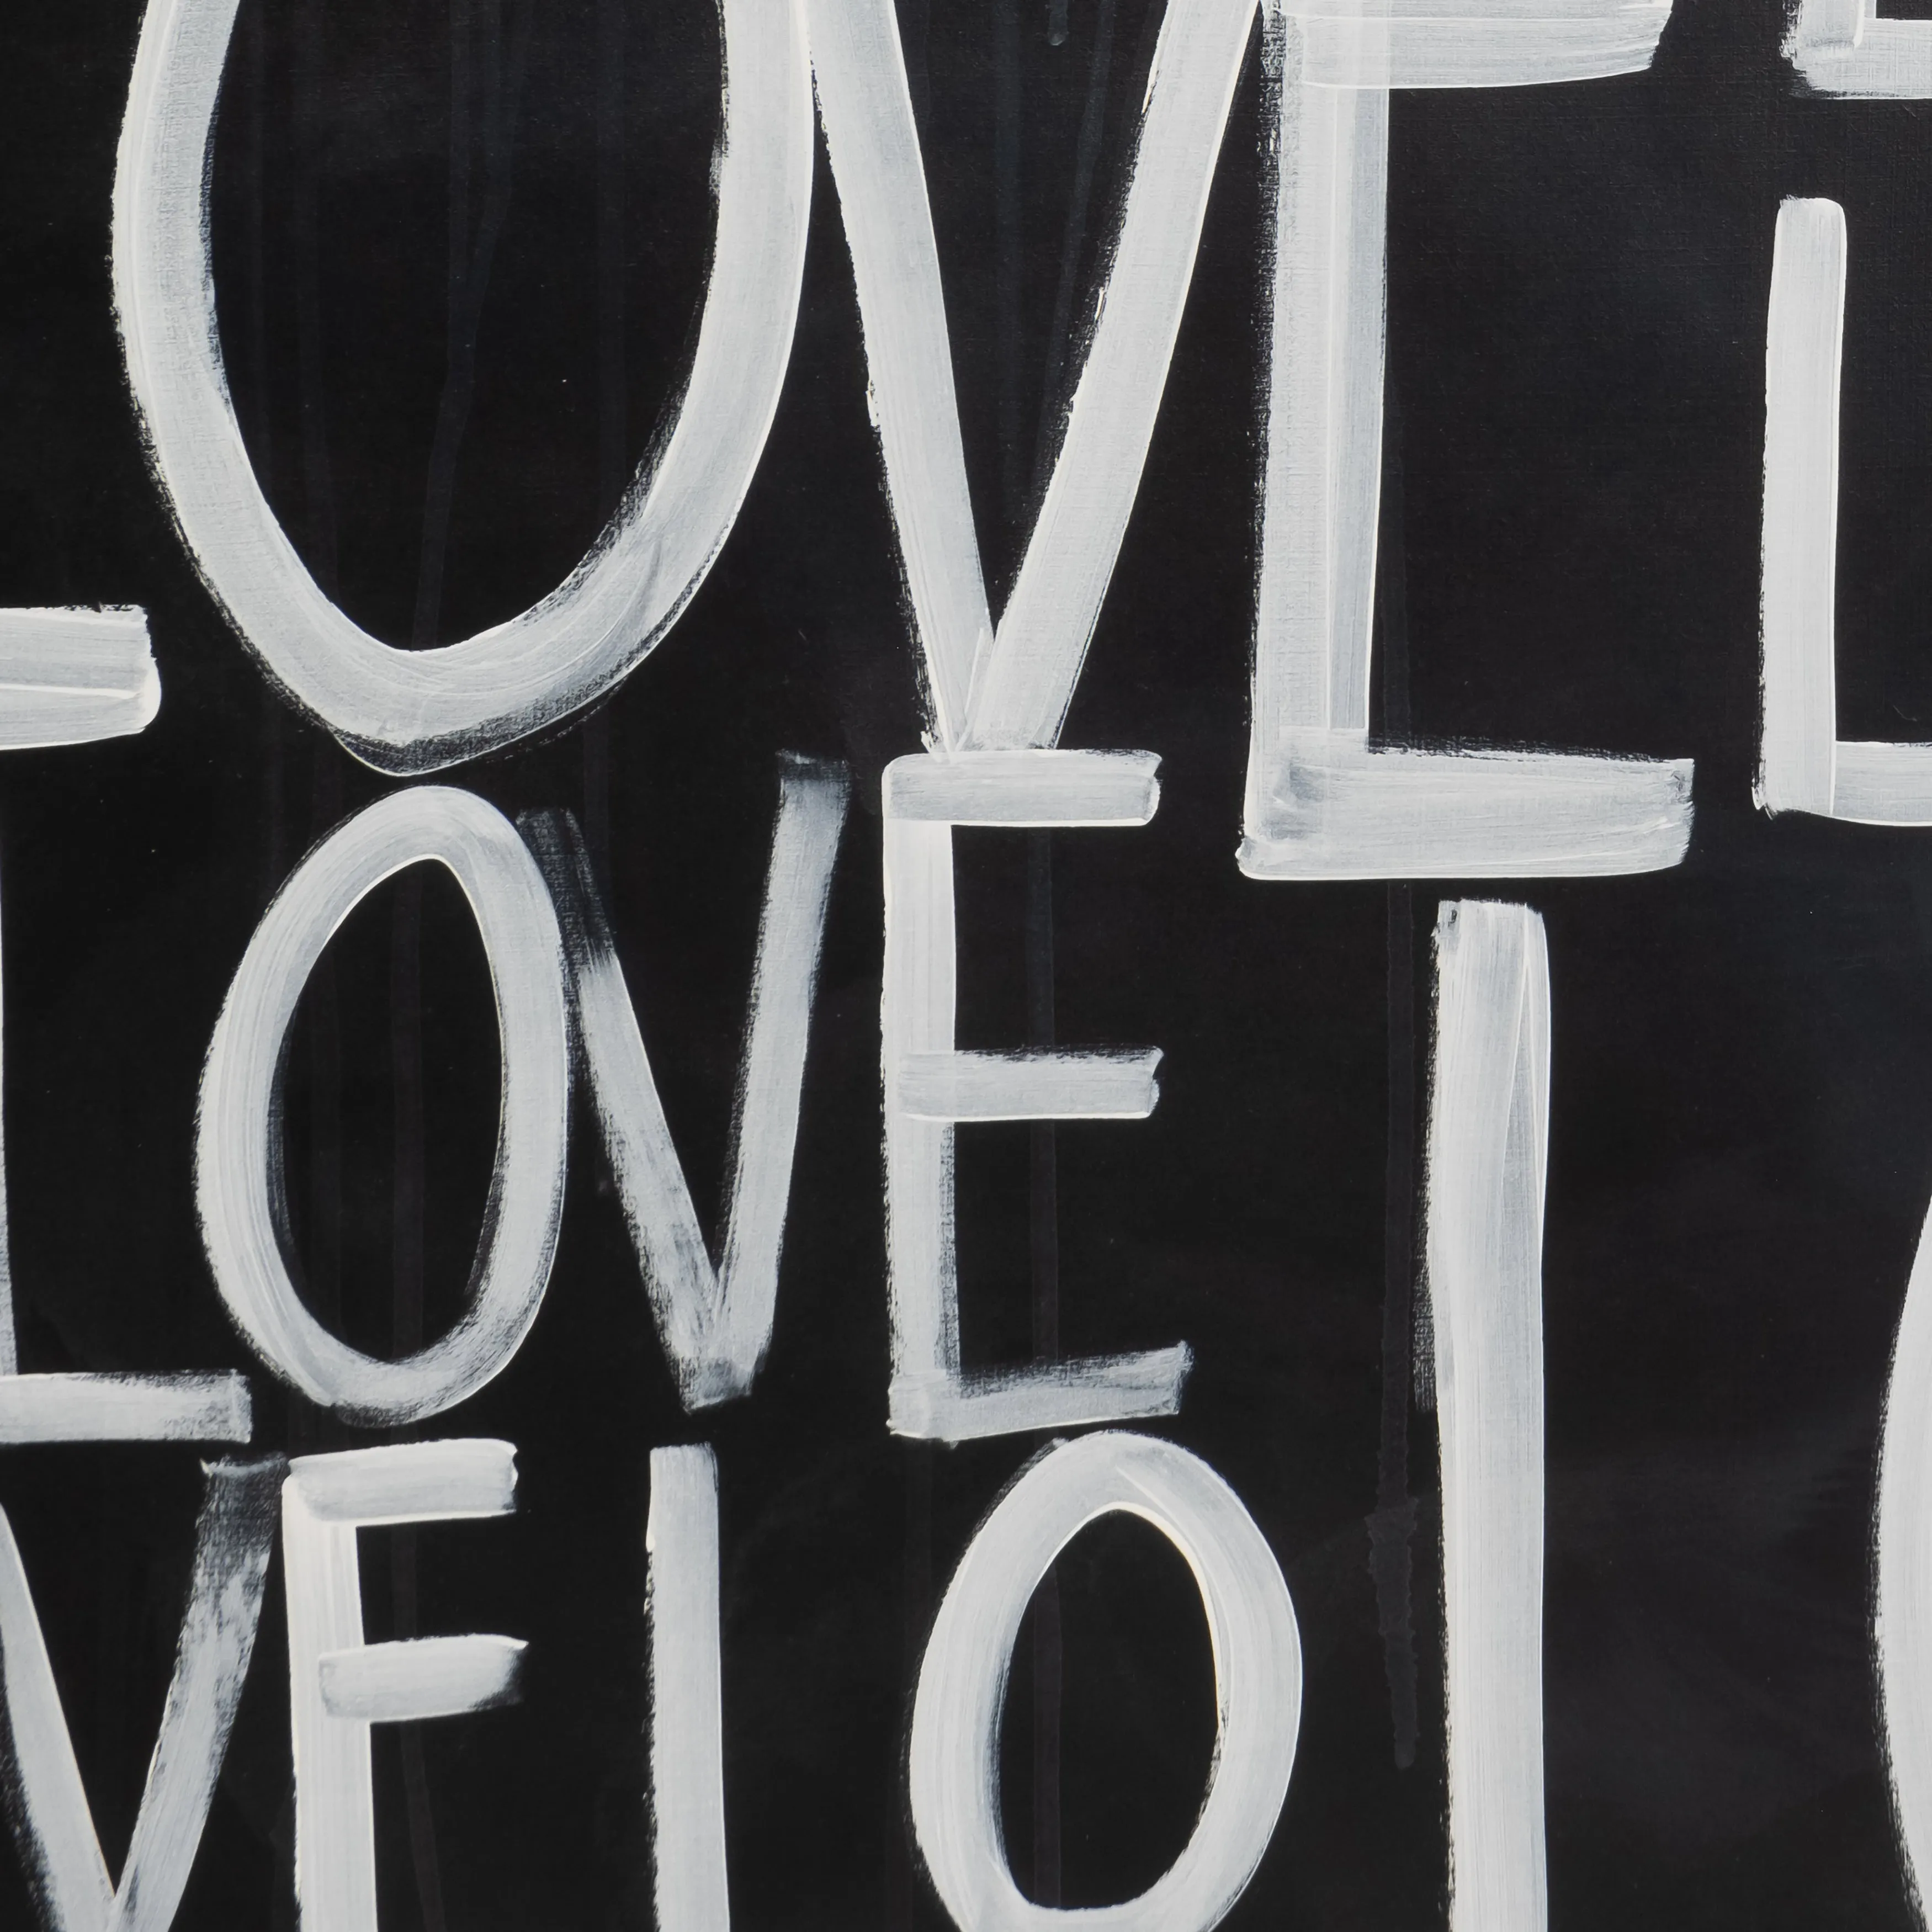 LOVE L
LOVE
VE LO